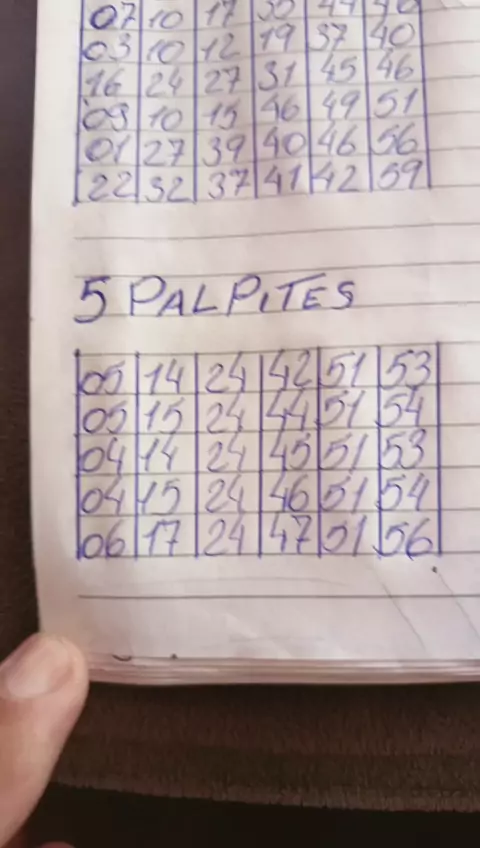 07 10 17 30 44 46
03 10 12 19 37 40
16 24 27 31 45 46
09 10 15 46 49 51
01 27 39 40 46 56
22 32 37 41 42 59
5 PALPITES
05 14 24 42 51 53
05 15 24 44 51 54
04 14 24 45 51 53
04 15 24 46 51 54
06 17 24 47 51 56